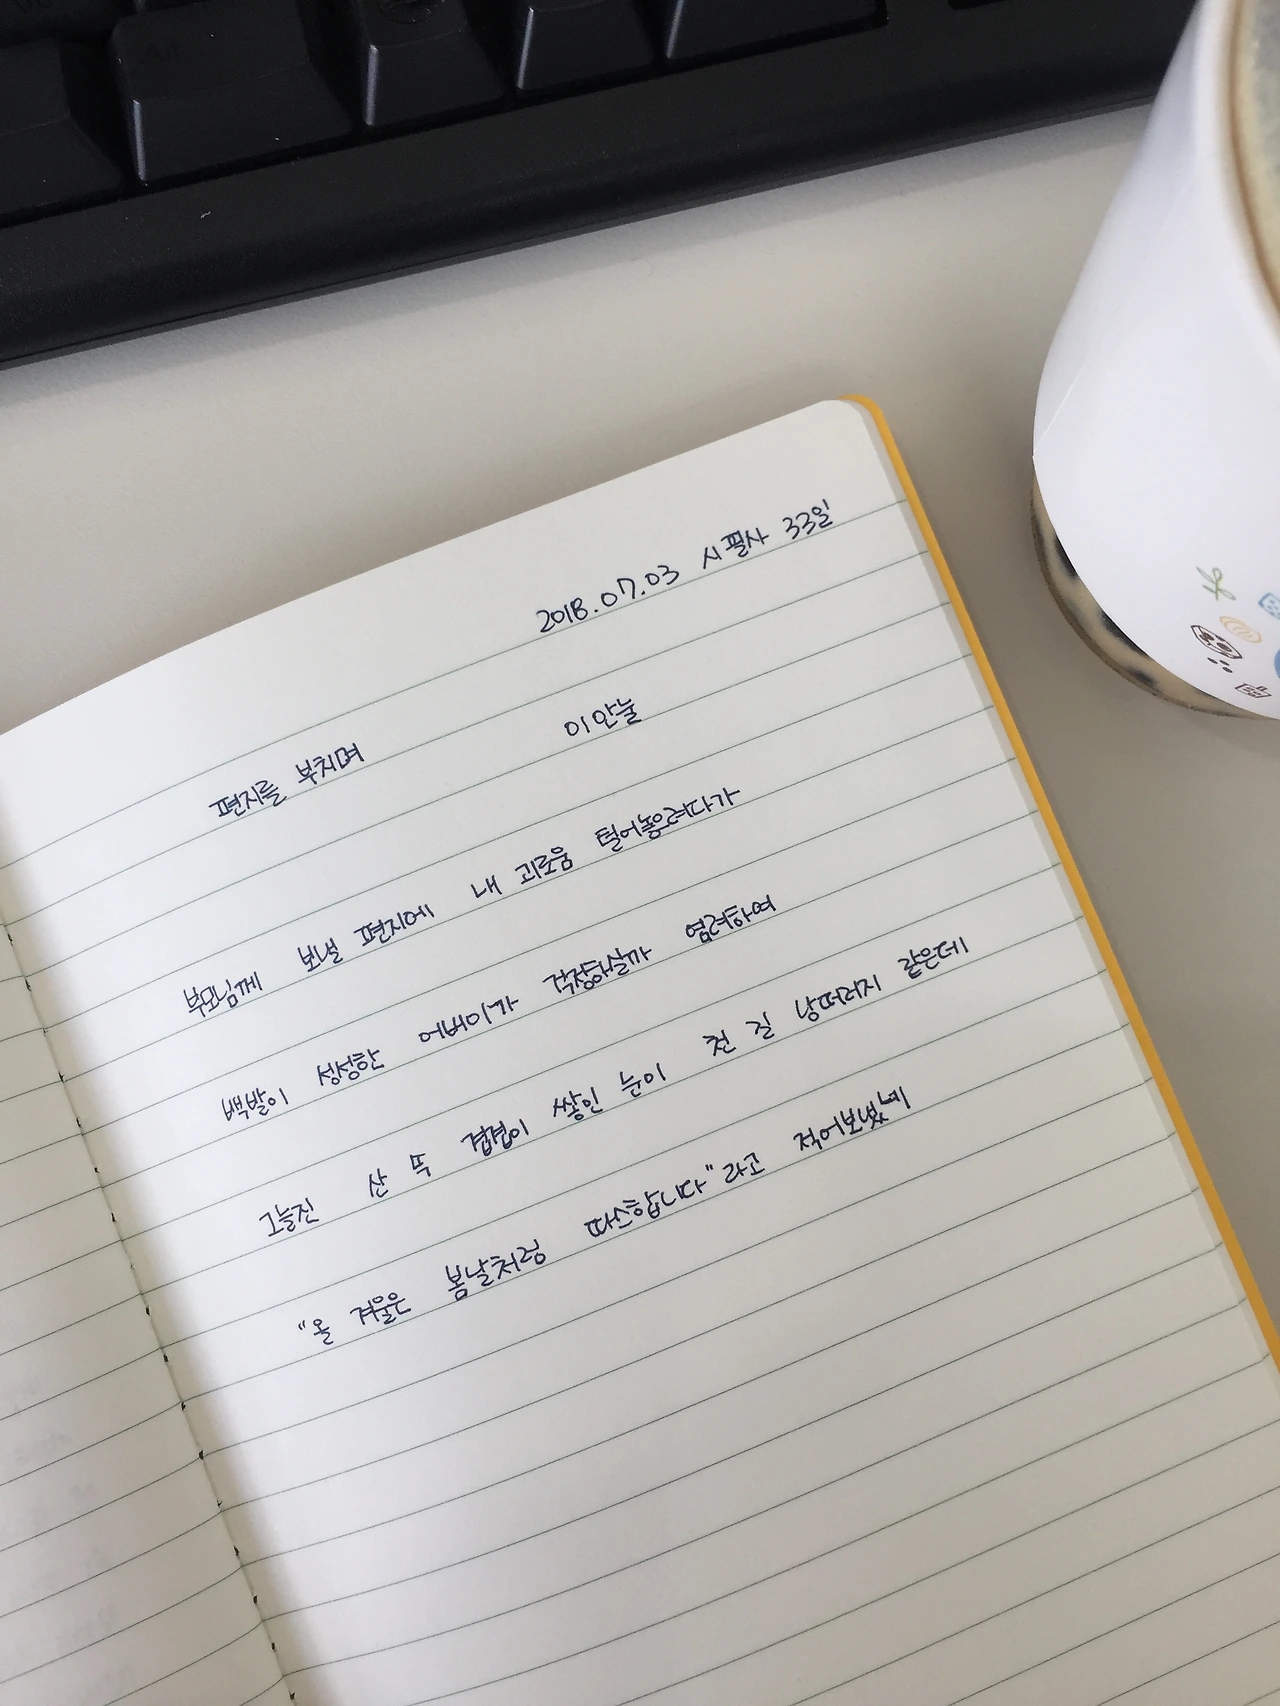 2018.07.03 시필사 33일
편지를 부치며 이안눌
부모님께 보낼 편지에 내 괴로움 털어놓으려다가
백발이 성성한 어버이가 걱정하실까 염려하여
그늘진 산 뚝 겹겹이 쌓인 눈이 천 길 낭떠러지 같은데
"올 겨울은 봄날처럼 따스합니다"라고 적어보냈네